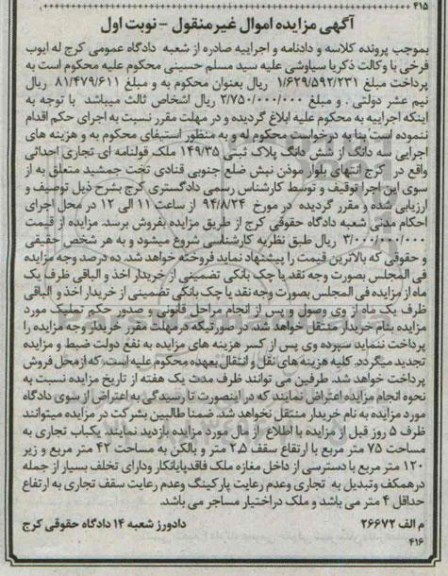 ۴۱۵
آگهی مزایده اموال غیرمنقول - نوبت اول
بموجب پرونده کلاسه و دادنامه و اجراییه صادره از شعبه دادگاه عمومی کرج له ایوب
فرخی با وکالت ذکریا سیاوشی علیه سید مسلم حسینی محکوم علیه محکوم است به
پرداخت مبلغ ۱/۶۲۹/۵۹۲/۲۳۱ ریال بعنوان محکوم به و مبلغ ۸۱/۴۷۹/۶۱۱ ریال
نیم عشر دولتی . و مبلغ ۲/۷۵۰/۰۰۰/۰۰۰ ریال اشخاص ثالث میباشد با توجه به
اینکه اجراییه به محکوم علیه ابلاغ گردیده و در مهلت مقرر نسبت به اجرای حکم اقدام
ننموده است بنا به درخواست محکوم له و به منظور استیفای محکوم به و هزینه های
اجرایی سه دانگ از شش دانگ پلاک ثبتی ۱۴۹/۳۵ ملک قولنامه ای تجاری احداثی
واقع در کرج انتهای بلوار موذن نبش ضلع جنوبی قنادی تخت جمشید متعلق به از
سوی این اجرا توقیف و توسط کارشناس رسمی دادگستری کرج بشرح ذیل توصیف و
ارزیابی شده و مقرر گردیده در مورخ ۹۴/۸/۲۴ از ساعت ۱۱ الی ۱۲ در محل اجرای
احکام مدنی شعبه دادگاه حقوقی کرج از طریق مزایده بفروش برسد. مزایده از قیمت
۳/۰۰۰/۰۰۰/۰۰۰ ریال طبق نظریه کارشناسی شروع میشود و به هر شخص حقیقی
و حقوقی که بالاترین قیمت را پیشنهاد نماید فروخته خواهد شد. ده درصد وجه مزایده
فی المجلس بصورت وجه نقد یا چک بانکی تضمینی از خریدار اخذ و الباقی ظرف یک
ماه از مزایده فی المجلس بصورت وجه نقد یا چک بانکی تضمینی از خریدار اخذ و الباقی
ظرف یک ماه از وی وصول و پس از انجام مراحل قانونی و صدور حکم تملیک مورد
مزایده بنام خریدار منتقل خواهد شد. در صورتیکه درمهلت مقرر خریدار وجه مزایده را
پرداخت ننماید سپرده وی پس از کسر هزینه های مزایده به نفع دولت ضبط و مزایده
تجدید میگردد. کلیه هزینه های نقل و انتقال بعهده محکوم علیه است که از محل فروش
پرداخت خواهد شد. طرفین می توانند ظرف مدت یک هفته از تاریخ مزایده نسبت به
نحوه انجام مزایده اعتراض نمایند که در اینصورت تا رسیدگی به اعتراض از سوی دادگاه
مورد مزایده به نام خریدار منتقل نخواهد شد. ضمنا طالبین بشرکت در مزایده میتوانند
ظرف ۵ روز قبل از مزایده با اطلاع از مال مورد مزایده بازدید نمایند. یکباب تجاری به
مساحت ۷۵ متر مربع با ارتفاع سقف ۲.۵ متر و بالکن به مساحت ۴۲ متر مربع و زیر
۱۲۰ متر مربع با دسترسی از داخل مغازه ملک فاقد پایانکار ودارای تخلف بسیار از جمله
درهمکف وتبدیل به تجاری وعدم رعایت پارکینگ وعدم رعایت سقف تجاری به ارتفاع
حداقل ۴ متر می باشد و ملک دراختیار مساجر می باشد.
م الف ۲۶۶۷۲ دادورز شعبه ۱۴ دادگاه حقوقی کرج
۴۱۶